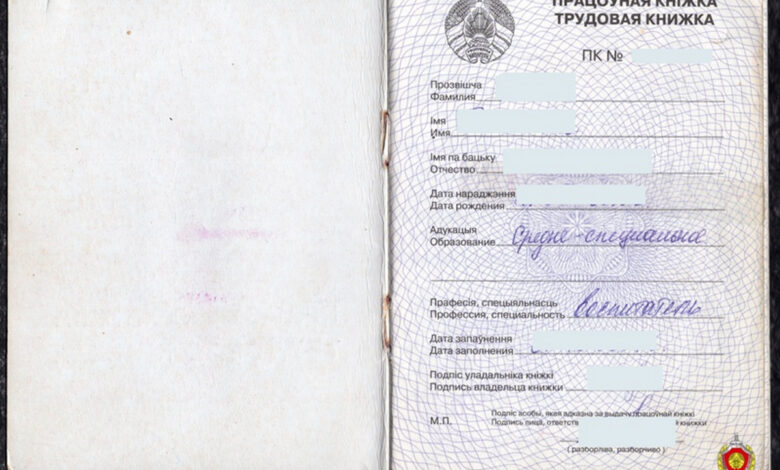 ПРАЦОЎНАЯ КНІЖКА
ТРУДОВАЯ КНИЖКА
ПК №
Прозвішча
Фамилия
Імя
Имя
Імя па бацьку
Отчество
Дата нараджэння
Дата рождения
Адукацыя
Образование средне-специальное
Прафесія, спецыяльнасць
Профессия, специальность воспитатель
Дата запаўнення
Дата заполнения
Подпіс уладальніка кніжкі
Подпись владельца книжки
М.П.
Подпіс асобы, якая адказна за выдачу працоўнай кніжкі
Подпись лица, ответст книжки
( разборліва, разборчиво )